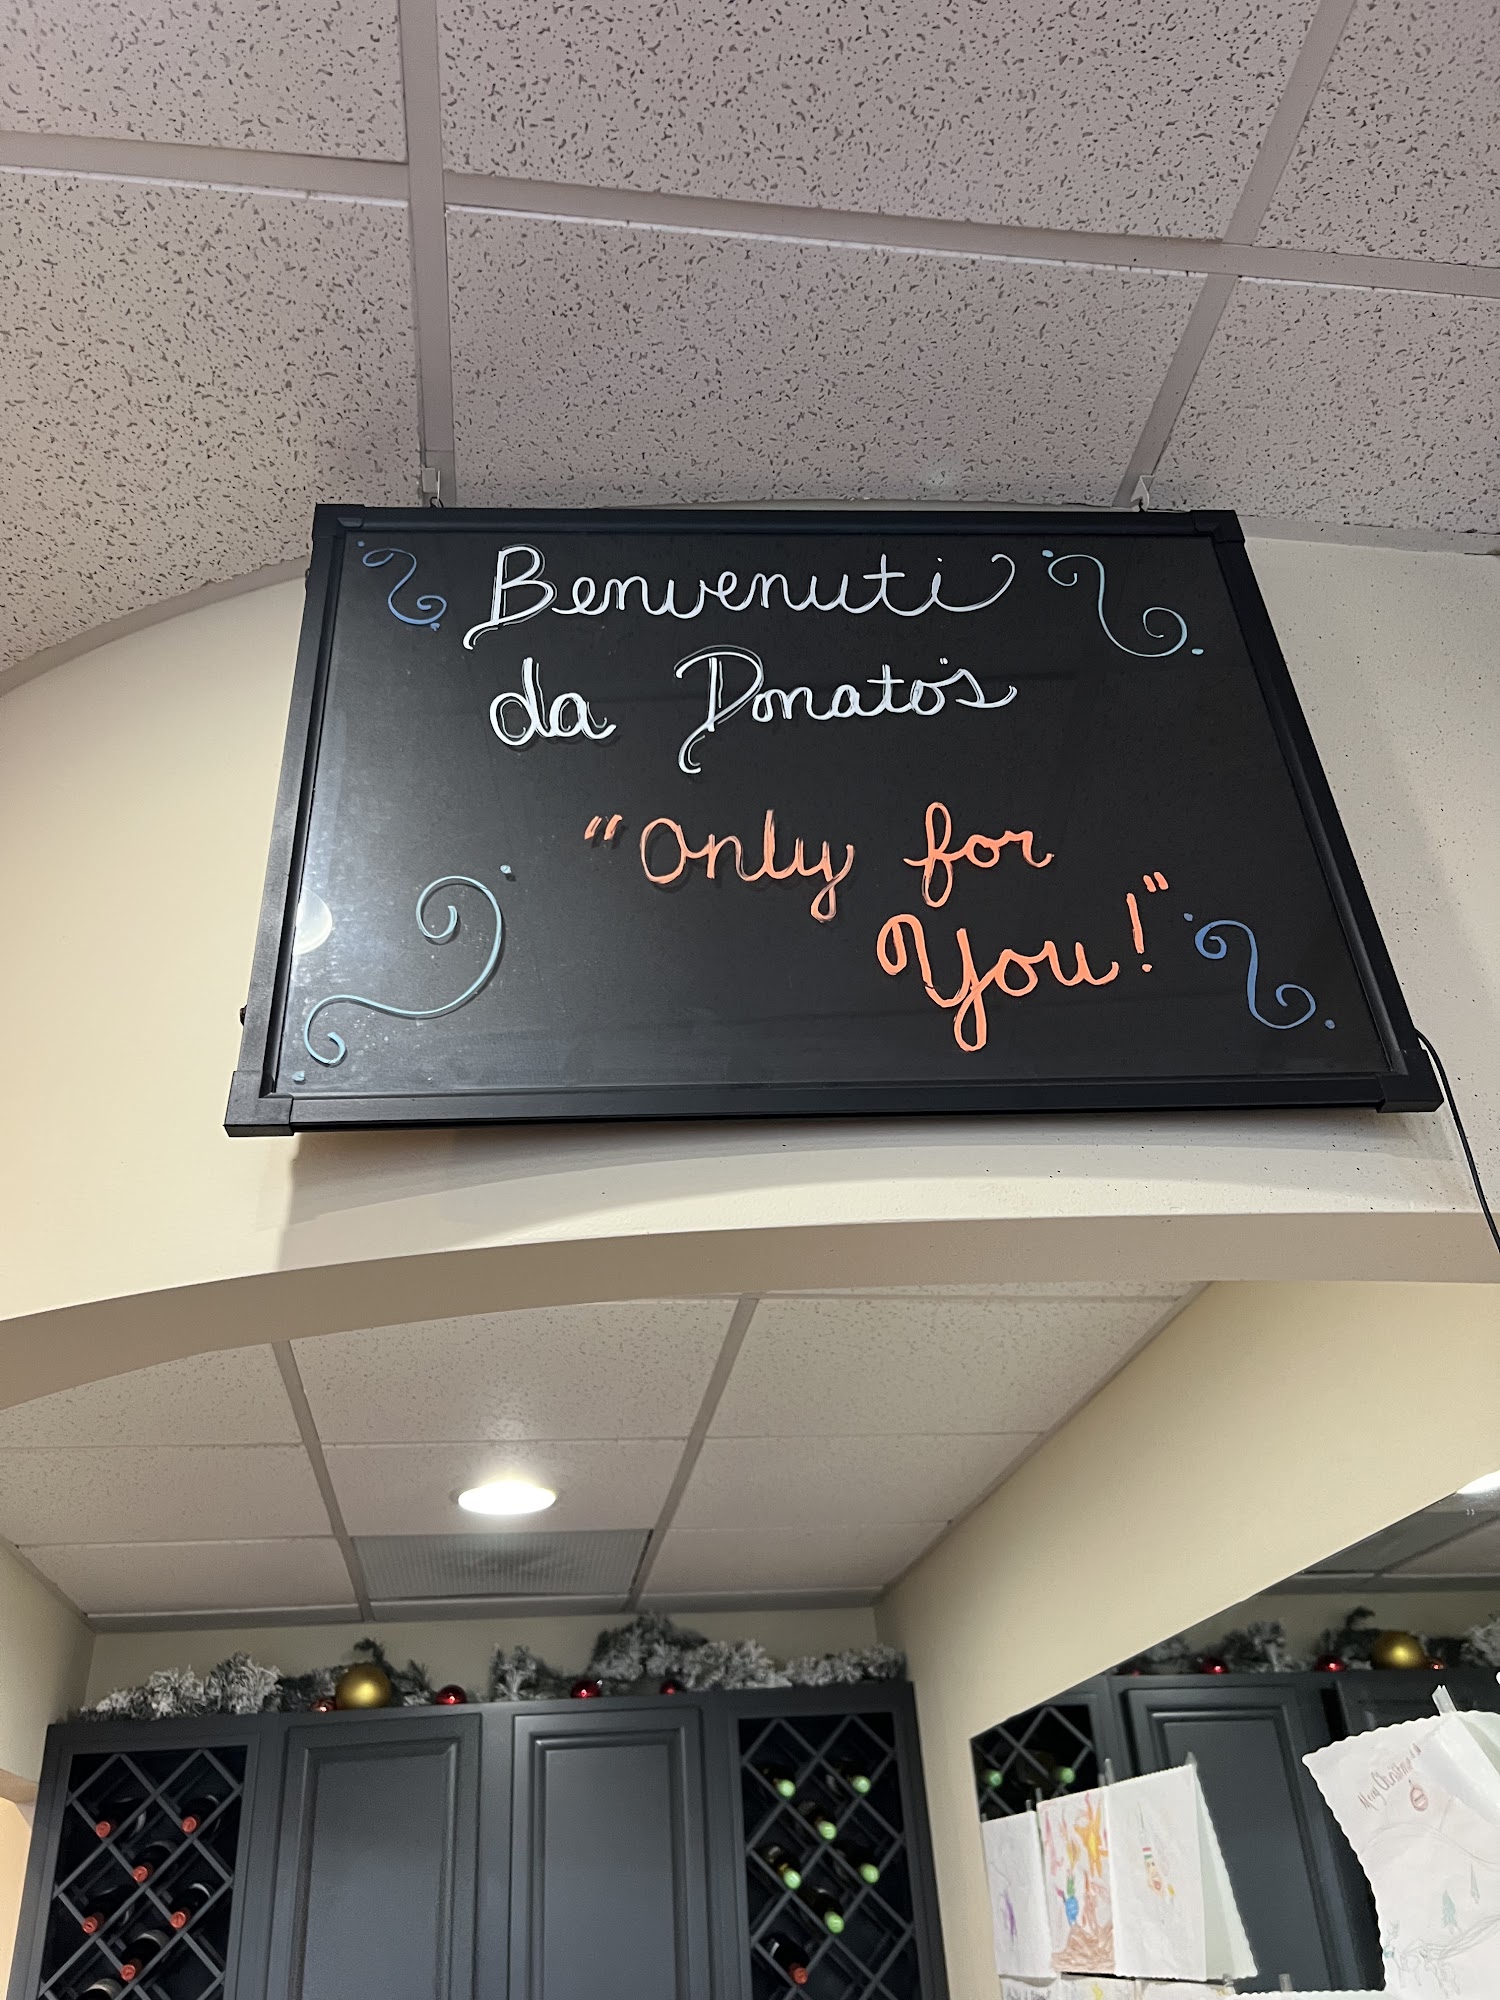 Benvenuti
da Donato's
"Only for
You!"
Merry Christmas